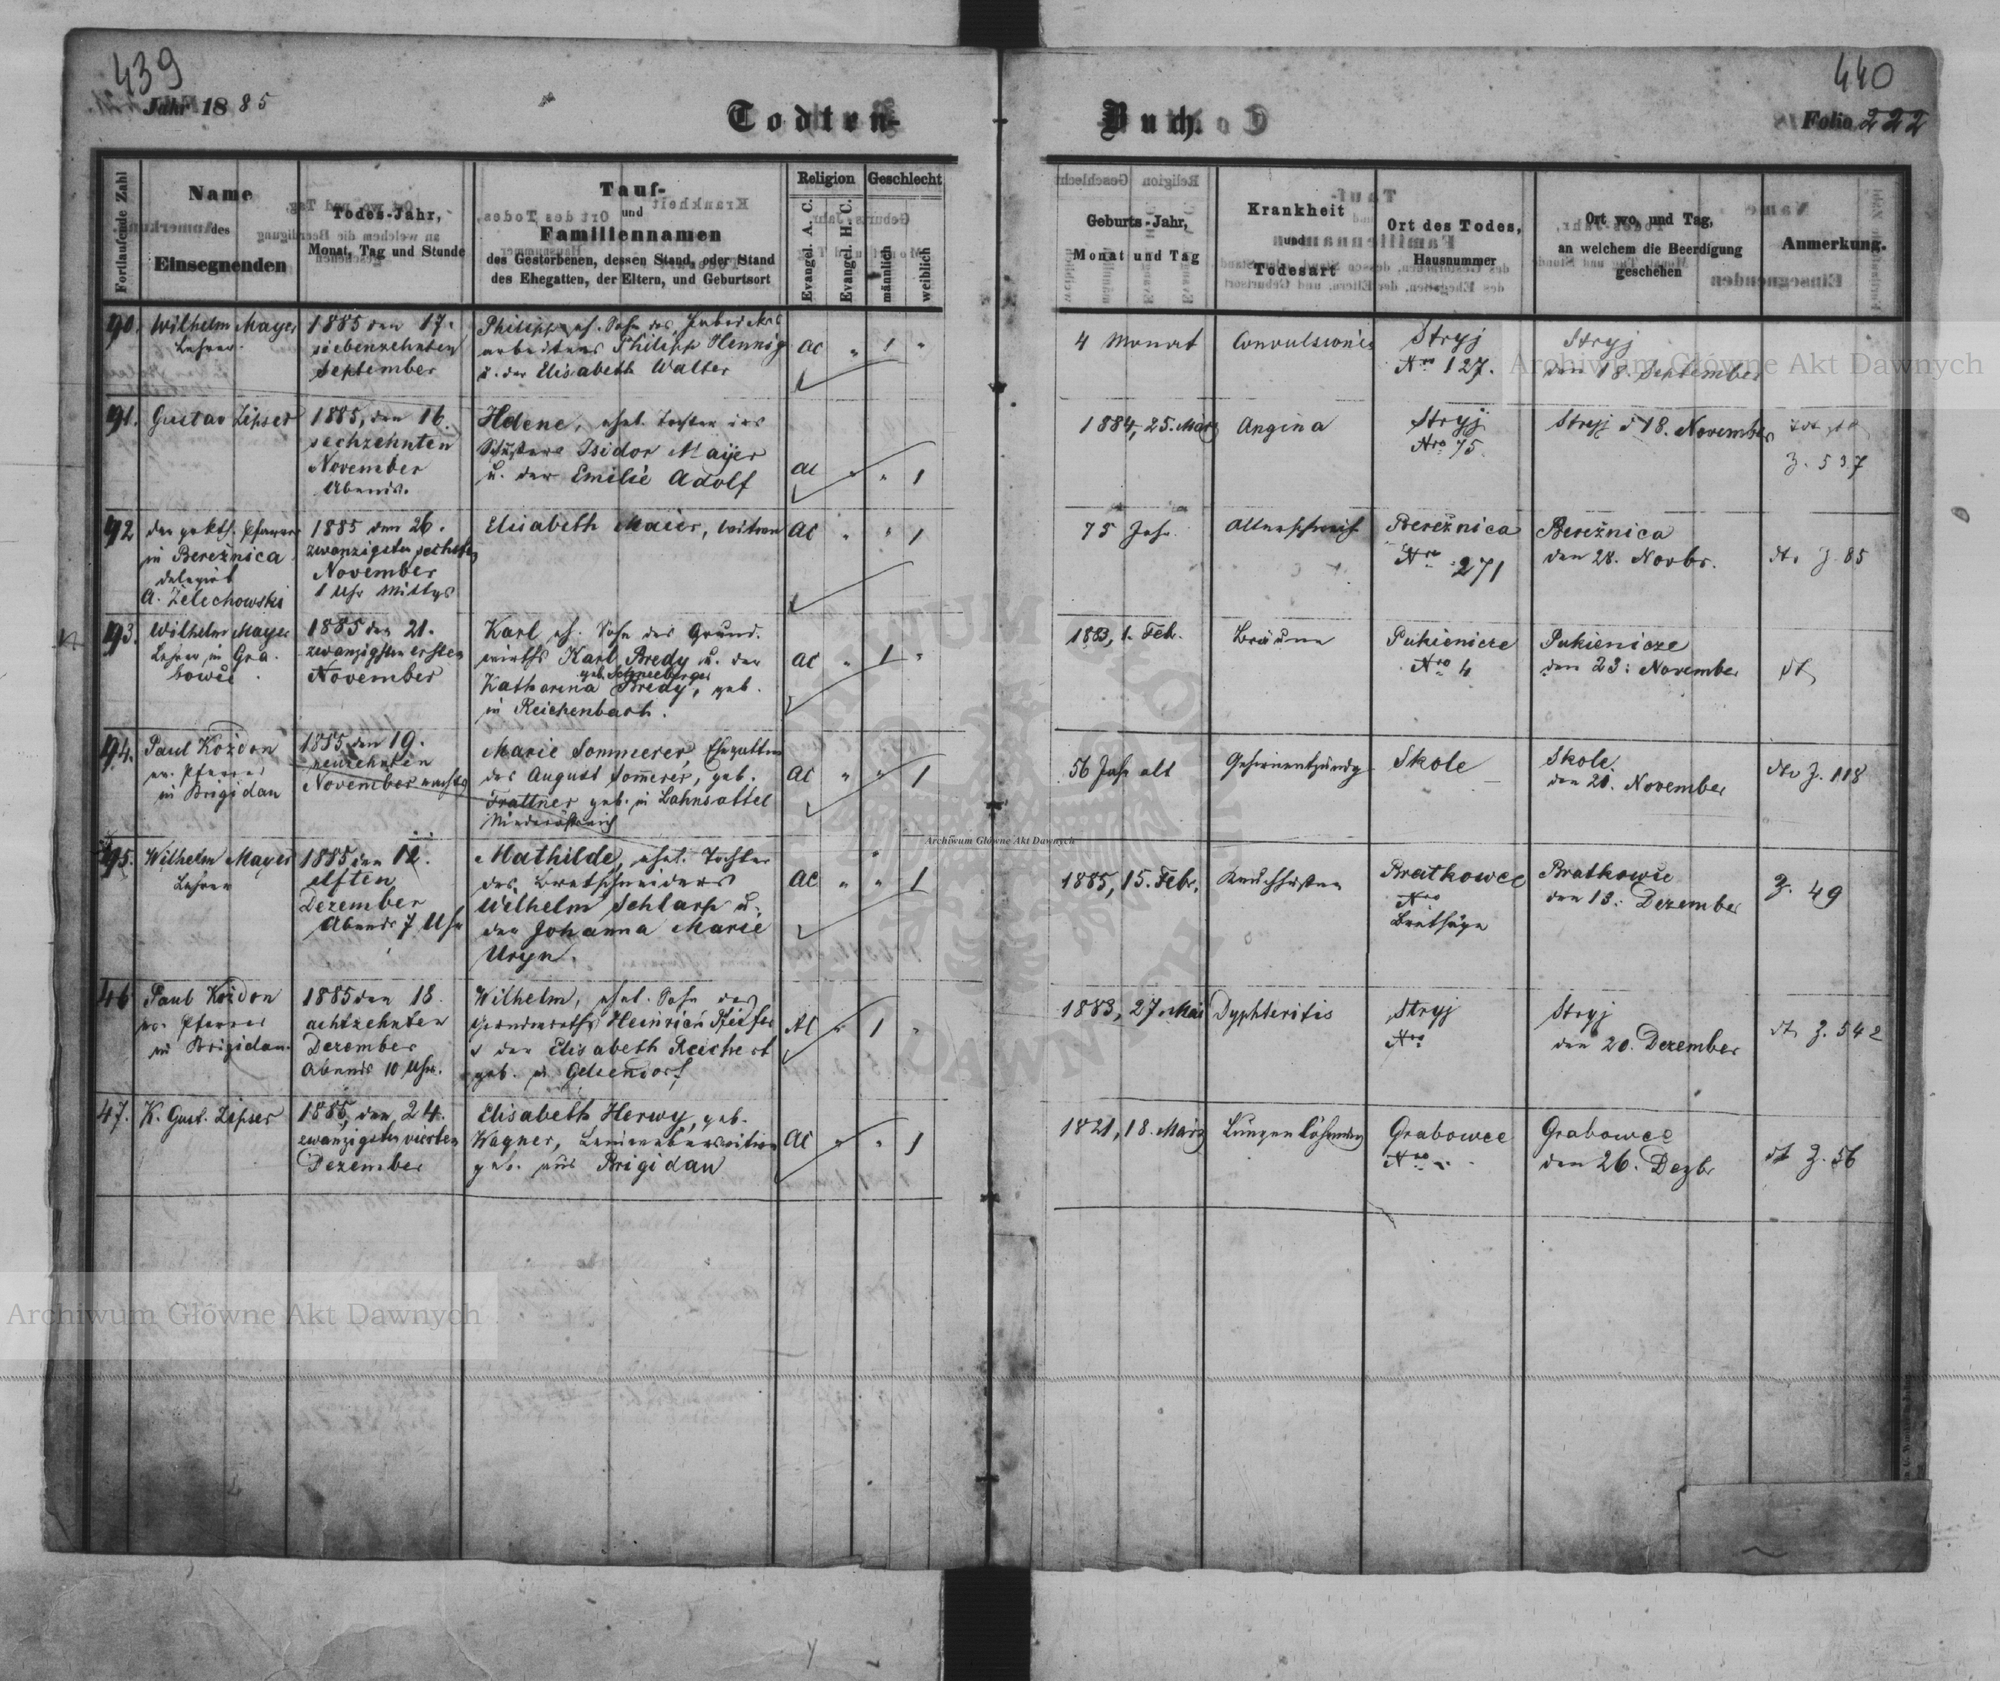 439
Jahr 1885
Todten-
Buch.
440
Folio 222
Fortlaufende Zahl
Name
des
Einsegnenden
Todes-Jahr,
Monat, Tag und Stunde
Tauf-
und
Familiennamen
des Gestorbenen, dessen Stand, oder Stand
des Ehegatten, der Eltern, und Geburtsort
Religion
Evangel. A. C.
Evangel. H. C.
Geschlecht
männlich
weiblich
Geburts-Jahr,
Monat und Tag
Krankheit
und
Todesart
Ort des Todes,
Hausnummer
Ort wo, und Tag,
an welchem die Beerdigung
geschehen
Anmerkung.
90.
Wilhelm Mayer
Lehrer
1885 den 17.
siebenzehnten
September
Philipp eh. Sohn des
arbeiters Philipp Hennig
u. der Elisabeth Walter
AC " 1 "
4 Monat
Convulsionis
Stryj
Nro 127.
Stryj
den 18. September
91.
Gustav Zipser
1885, den 16.
sechzehnten
November
Abends.
Helene, ehel. Tochter des
Schusters Isidor Mayer
u. der Emilie Adolf
AC " " 1
1884, 25. März
Angina
Stryj
Nro 75
Stryj d 18. November
Z. 537
92
der gr. kth. Pfarrer
in Berežnica
delegirt
A. Zelechowski
1885 den 26.
zwanzigsten sechsten
November
1 Uhr Mittgs
Elisabeth Maier, Witwe
AC " " 1
75 Jahr
Altersschwäche
Berežnica
Nro 271
Berežnica
den 28. Novbr.
dto Z. 85
93.
Wilhelm Mayer
Lehrer in Gra-
bowce
1885 den 21.
zwanzigsten ersten
November
Karl eh. Sohn des Grund-
wirths Karl Bredy u. der
geb. Schneeberger
Katharina Bredy, geb.
in Reichenbach.
AC " 1 "
1883, 1. Feb.
Bräune
Pukienicze
Nro 4
Pukienicze
den 23. November
dt
94.
Paul Koždon
ev. Pfarrer
in Brigidau
1885 den 19.
neunzehnten
November
Marie Sommerer, Ehegattin
des August Somerer, geb.
Trattner geb. in Lahnsattel
Niederöstereich
AC " " 1
56 Jahr alt
Gehirnentzündg
Skole
Skole
den 21. November
dto Z. 118
95.
Wilhelm Mayer
Lehrer
1885 den 12.
elften
Dezember
Abends 7 Uhr
Mathilde, ehel. Tochter
des Bretschneiders
Wilhelm Schlarp u.
der Johanna Marie
Uryn.
AC " " 1
1885, 15. Febr.
Keuchhusten
Bratkowce
Nro
Bretsäge
Bratkowce
den 13. Dezember
Z. 49
46
Paul Koždon
ev. Pfarrer
in Brigidau
1885 den 18.
achtzehnten
Dezember
Abends 10 Uhr.
Wilhelm, ehel. Sohn des
Grundwirths Heinrich Pfeifer
u der Elisabeth Reichert
geb. in Gelsendorf
AC " 1 "
1883, 27. Mai
Dyphteritis
Stryj
Nro
Stryj
den 20. Dezember
dto Z. 542
47.
K. Gust. Zipser
1885, den 24.
zwanzigsten vierten
Dezember
Elisabeth Herwy, geb.
Wagner,
geb. aus Brigidau
AC " " 1
1821, 18. März
Lungenlähmung
Grabowce
Nro -
Grabowce
den 26. Dezbr
dt Z. 56
Archiwum Główne Akt Dawnych
Archiwum Główne Akt Dawnych
Archiwum Główne Akt Dawnych